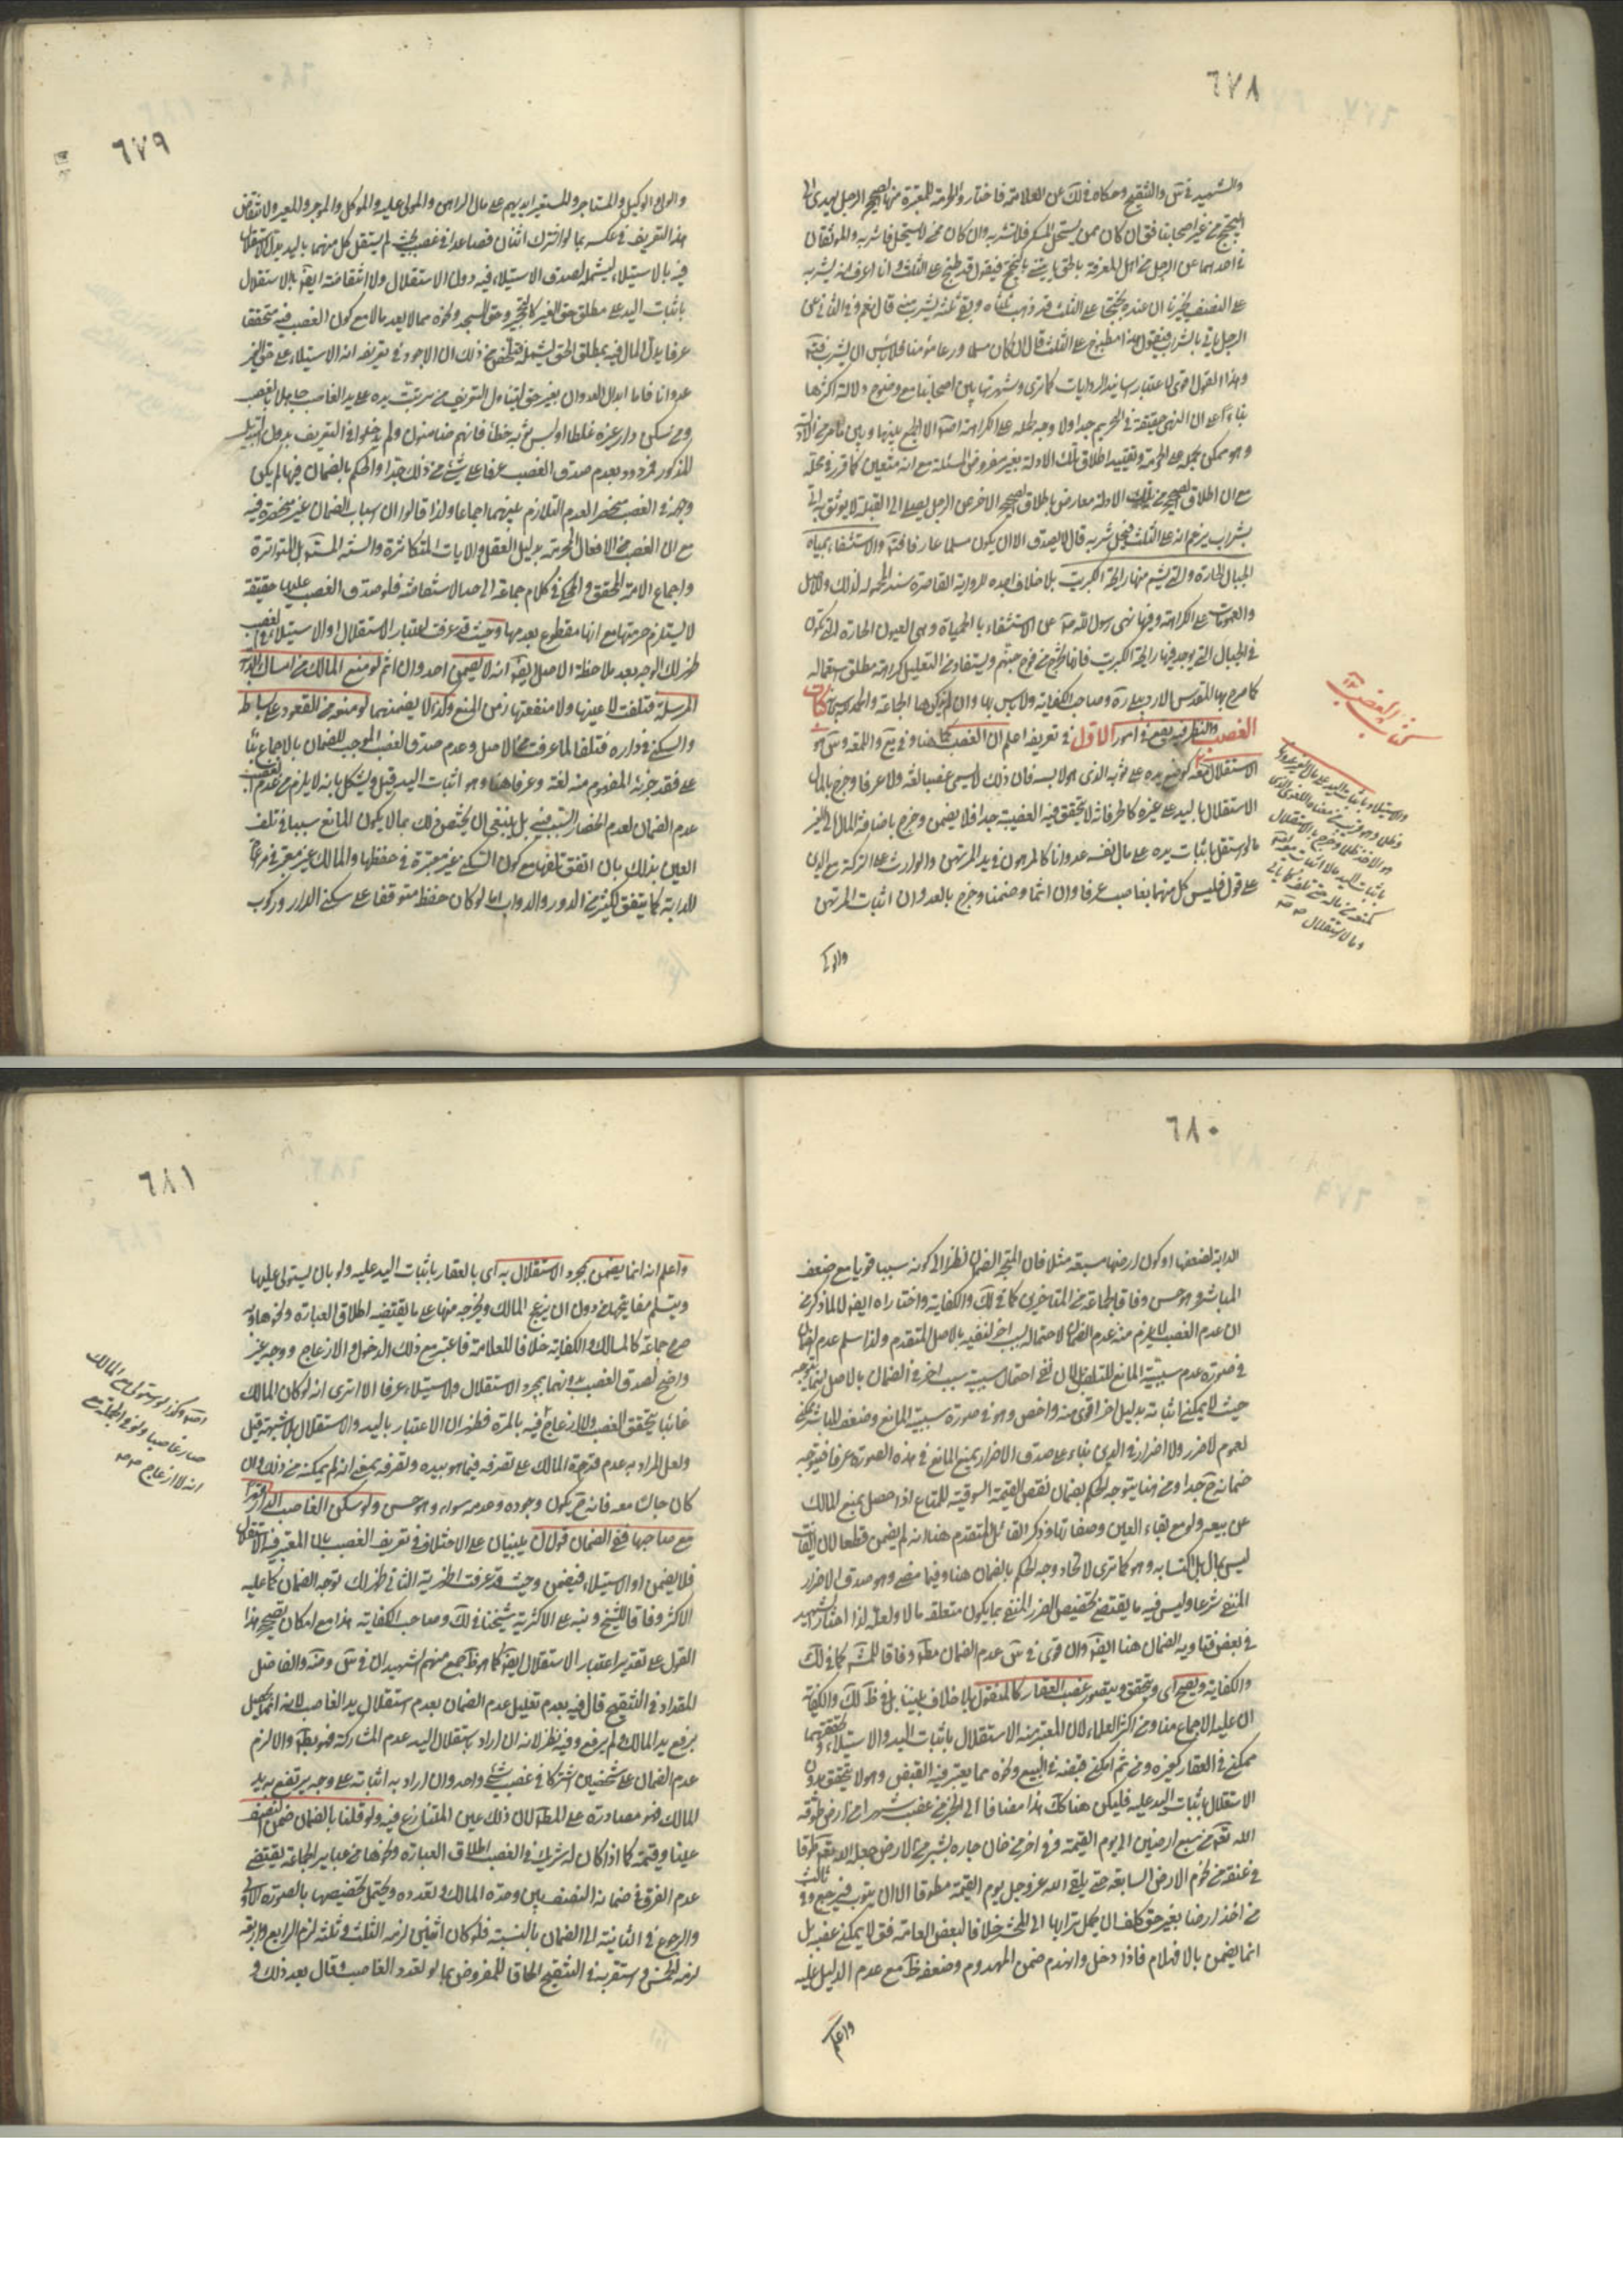 ٦٧٨
والشهيد في س والتنقيح وحكاه في لك عن العلامة فاختاروا الحرمة للمعتبرة منها الصحيح الرجل يهدى الى
البختج من غير اصحابنا فق ان كان ممن يستحل المسكر فلا تشربه وان كان ممن لا يستحل فاشربه والموثقان
في احدهما عن الرجل من اهل المعرفة بالحق ياتيني بالبختج فيقول قد طبخ على الثلث وانا اعرف انه يشربه
على النصف
الرجل ياتي بالشراب فيقول هذا مطبوخ على الثلث قال ان كان مسلما ورعا مؤمنا فلا باس ان يشرب
وهذا القول اقوى لاعتبار اسانيد الروايات كما ترى وشهرتها بين اصحابنا مع وضوح دلالة اكثرها
بناء على ان النهي حقيقة في التحريم جدا ولا وجه لحمله على الكراهة الا الجمع بينها وبين ما مر من الادلة
وهو ممكن بحمله على الحرمة وتقييد اطلاق تلك الادلة بغير مفروض المسئلة مع انه متعين كما قرر في محله
مع ان اطلاق الصحيح من تلك الادلة معارض باطلاق الصحيح الاخر عن الرجل يصلي الى القبلة لا يوثق به اتى
بشراب يزعم انه على الثلث فيحل شربه قال لا يصدق الا ان يكون مسلما عارفا والاستشفاء بمياه
الجبال الحارة التي يشم منها رايحة الكبريت بلا خلاف اجده للرواية القاصرة سندا المحمولة لذلك والاصل
والعمومات على الكراهة وفيها نهى رسول الله ص عن الاستشفاء بالحميات وهي العيون الحارة التي تكون
في الجبال التي يوجد فيها رايحة الكبريت فانها تخرج من فوح جهنم ويستفاد من التعليل كراهة مطلق استعماله
كما صرح بها المقدس الاردبيلي ره وصاحب الكفاية ولا باس بها وان لم يذكرها الجماعة والحمد لله كتاب
الغصب والنظر فيه يقع في امور الاول في تعريفه اعلم ان الغصب كما هنا وفي يع واللمعة و س هو
الاستقلال
معه كوضع يده على ثوبه الذي هو لابسه فان ذلك لا يسمى غصبا لغة ولا عرفا وخرج بالمال
الاستقلال باليد على غيره كالحر فانه لا تتحقق فيه الغصبية جدا فلا يضمن وخرج باضافة المال الى الغير
ما لو استقل باثبات يده على مال نفسه عدوانا كالمرهون في يد المرتهن والوارث على التركة مع الدين
على قول فليس كل منهما بغاصب عرفا وان اثما وضمنا وخرج بالعدوان اثبات المرتهن
والوكيل
كتاب الغصب
٦٧٩
والولي والوكيل والمستاجر والمستعير ايديهم على مال الراهن والمولى عليه والموكل والموجر والمعير ولا انتقاض
هذا التعريف في عكسه بما لو اشترك اثنان فصاعدا في غصب بحيث لم يستقل كل منهما باليد
فيه بالاستيلاء ليشمله لصدق الاستيلاء فيه دون الاستقلال ولانتقاضه ايضا بالاستقلال
باثبات اليد على مطلق حق الغير كالتحجير وحق المسجد ونحوه مما لا يعد مالا مع كون الغصب فيه متحققا
عرفا بدل المال فيه بمطلق الحق ليشمله فتلخص من ذلك ان الاجود في تعريفه انه الاستيلاء على حق الغير
عدوانا فاما ابدال العدوان بغير حق ليتناول التعريف من ترتبت يده على يد الغاصب جاهلا بالغصب
ومن سكن دار غيره غلطا او لبس ثوبه خطأ فانهم ضامنون ولم يدخلوا في التعريف بدون التبديل
المذكور فمردود بعدم صدق الغصب عرفا على شيء من ذلك جدا والحكم بالضمان فيها لم يكن
وجهه في الغصب منحصرا لعدم التلازم بينهما اجماعا ولذا قالوا ان اسباب الضمان غير منحصرة فيه
مع ان الغصب من الافعال المحرمة بدليل العقل والايات المتكاثرة والسنة المستفيضة بل المتواترة
واجماع الامة المحقق والمحكي في كلام جماعة الى حد الاستفاضة فلو صدق الغصب عليها حقيقة
لاستلزم حرمتها مع انها مقطوع بعدمها وحيث قد عرفت اعتبار الاستقلال او الاستيلاء في الغصب
ظهر لك الوجه بعد ملاحظة الاصل ايضا انه لا يضمن احد وان اثم لو منع المالك من امساك الدابة
المرسلة فتلفت لا عينها ولا منفعتها زمن المنع وكذا لا يضمنهما لو منعه من القعود على بساطه
والسكنى في داره فتلفا لما عرفت من الاصل وعدم صدق الغصب الموجب للضمان بالاجماع بناء
على فقد جزئه المفهوم منه لغة وعرفا هنا وهو اثبات اليد قيل ويشكل بانه لا يلزم من عدم الغصب
عدم الضمان لعدم انحصار السبب فيه بل ينبغي ان يختص ذلك بما لا يكون المانع سببا في تلف
العين بذلك بان اتفق تلفها مع كون السكنى غير معتبرة في حفظها والمالك غير معتبر في مراعاة
الدابة كما يتفق لكثير من الدور والدواب اما لو كان حفظه متوقفا على سكنى الدار وركوب
٦٨٠
الدابة لضعفها او كون ارضها مسبعة مثلا فان المتجه الضمان نظرا الى كونه سببا قويا مع ضعف
المباشر وهو حسن وفاقا لجماعة من المتاخرين كما في لك والكفاية واختاراه ايضا لما ذكر من
ان عدم الغصب لا يلزم منه عدم الضمان لاحتماله لسبب اخر لنفيه بالاصل المتقدم ولذا سلم عدم الضمان
في صورة عدم سببية المانع للتلف لان نفي احتمال سببية سبب اخر في الضمان بالاصل انما يتوجه
حيث لا يمكن اثباته بدليل اخر اقوى منه واخص وهو في صورة سببية المانع وضعف المباشر ممكن
لعموم لا ضرر ولا اضرار في الدين بناء على صدق الاضرار بمنع المانع في هذه الصورة عرفا فيتوجه
ضمانه ح جدا ومن هنا يتوجه الحكم بضمان نقص القيمة السوقية للمتاع اذا حصل بمنع المالك
عن بيعه ولو مع بقاء العين وصفاتها وذكر القائل المتقدم هنا انه لم يضمن قطعا لان الفائت
ليس بمال بل اكتسابه وهو كما ترى لاتحاد وجه الحكم بالضمان هنا وفيما مضى وهو صدق الاضرار
المنفي شرعا وليس فيه ما يقتضي تخصيص الضرر المنفي بما يكون متعلقه مالا ولعله لذا اختار الشهيد
في بعض فتاويه الضمان هنا ايضا وان قوى في س عدم الضمان مطلقا وفاقا للمشهور كما في لك
والكفاية ويصح اي يتحقق ويتصور غصب العقار كالمنقول بلا خلاف بيننا بل في ظ لك والكفاية
ان عليه الاجماع منا ومن اكثر العلماء لان المعتبر منه الاستقلال باثبات اليد والاستيلاء وحقيقتهما
ممكنة في العقار كغيره ومن ثم امكن قبضه في البيع ونحوه مما يعتبر فيه القبض وهو لا يتحقق بدون
الاستقلال باثبات اليد عليه فليكن هنا كك هذا مضافا الى الخبر من غصب شبرا من ارض طوقه
الله تعالى من سبع ارضين الى يوم القيمة وفي اخر من خان جاره بشبر من الارض جعله الله تعالى طوقا
في عنقه من تخوم الارض السابعة حتى يلقى الله عز وجل يوم القيمة مطوقا الا ان يتوب فيرجع وفي ثالث
من اخذ ارضا بغير حق كلف ان يحمل ترابها الى المحشر خلافا لبعض العامة فق لا يمكن غصبه بل
انما يضمن بالاتلاف فاذا دخل وانهدم ضمن المهدوم وضعفه ظ مع عدم الدليل عليه
واعلم
٦٨١
واعلم انه انما يضمن بمجرد الاستقلال به اي بالعقار باثبات اليد عليه ولو بان يستولي عليها
ويتسلم مفاتيحها من دون ان يزعج المالك ويخرجه منها على ما يقتضيه اطلاق العبارة ونحوها وبه
صرح جماعة كالمسالك والكفاية خلافا للعلامة فاعتبر مع ذلك الدخول والازعاج ووجهه غير
واضح لصدق الغصب بدونهما بمجرد الاستقلال والاستيلاء عرفا الا ترى انه لو كان المالك
غائبا يتحقق الغصب ولا ازعاج فيه بالمرة فظهر ان الاعتبار باليد والاستقلال بلا شبهة قيل
ولعل المراد به عدم قدرة المالك على تصرفه فيما هو بيده وتصرفه بمعنى انه لم يمكنه من ذلك وان
كان جالسا معه فانه ح يكون وجوده وعدمه سواء وهو حسن ولو سكن الغاصب الدار قهرا
مع صاحبها ففي الضمان قولان يبنيان على الاختلاف في تعريف الغصب بان المعتبر فيه الاستقلال
فلا يضمن او الاستيلاء فيضمن وحيث قد عرفت اظهرية الثاني ظهر لك توجه الضمان كما عليه
الاكثر وفاقا للشيخ ونبه على الاكثرية شيخنا في لك وصاحب الكفاية هذا مع امكان تصحيح هذا
القول على تقدير اعتبار الاستقلال ايضا كما هو ظ جمع منهم الشهيدان في س وضه والفاضل
المقداد في التنقيح قال فيه بعدم تعليل عدم الضمان بعدم استقلال يد الغاصب لانه انما يحصل
برفع يد المالك ولم يرفع وفيه نظر لانه ان اراد باستقلال اليد عدم المشاركة فهو بط والا لزم
عدم الضمان على شخصين اشتركا في غصب شيء واحد وان اراد به اثباته على وجه يرتفع به يد
المالك فهو مصادرة على المطلوب لان ذلك عين المتنازع فيه ولو قلنا بالضمان ضمن النصف
عينا وقيمة كما اذا كان له شريك في الغصب اطلاق العبارة ونحوها من عباير الجماعة يقتضي
عدم الفرق في ضمانه النصف بين وحدة المالك وتعدده ويحتمل تخصيصها بالصورة الاولى
والرجوع في الثانية الى الضمان بالنسبة فلو كان اثنين لزمه الثلث وثلثة لزم الرابع واربعة
لزمه الخمس واستقربه في التنقيح الحاقا للمفروض بما لو تعدد الغاصب وقال بعد ذلك و